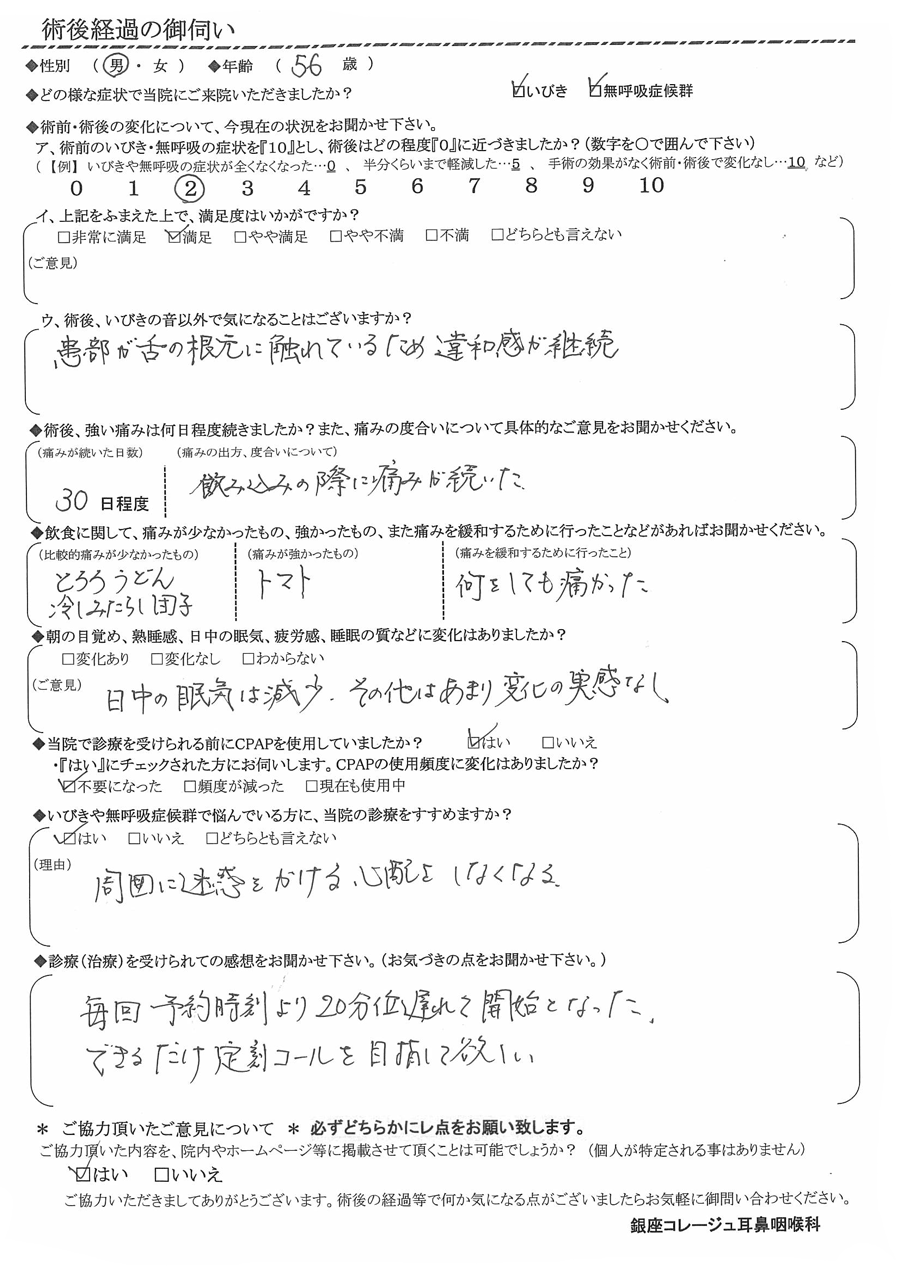 術後経過の御伺い
◆性別 （ 男 ・ 女 ） ◆年齢 （ 56 歳 ）
◆どの様な症状で当院にご来院いただきましたか？ ☑いびき ☑無呼吸症候群
◆術前・術後の変化について、今現在の状況をお聞かせ下さい。
ア、術前のいびき・無呼吸の症状を『10』とし、術後はどの程度『0』に近づきましたか？（数字を○で囲んで下さい）
（ 【例】 いびきや無呼吸の症状が全くなくなった…0 、 半分くらいまで軽減した…5 、 手術の効果がなく術前・術後で変化なし…10 など）
0 1 2 3 4 5 6 7 8 9 10
イ、上記をふまえた上で、満足度はいかがですか？
□非常に満足 ☑満足 □やや満足 □やや不満 □不満 □どちらとも言えない
（ご意見）
ウ、術後、いびきの音以外で気になることはございますか？
患部が舌の根元に触れているため違和感が継続
◆術後、強い痛みは何日程度続きましたか？また、痛みの度合いについて具体的なご意見をお聞かせください。
（痛みが続いた日数） （痛みの出方、度合いについて）
30 日程度 飲み込みの際に痛みが続いた
◆飲食に関して、痛みが少なかったもの、強かったもの、また痛みを緩和するために行ったことなどがあればお聞かせください。
（比較的痛みが少なかったもの） （痛みが強かったもの） （痛みを緩和するために行ったこと）
とろろうどん トマト 何をしても痛かった
冷しみたらし団子
◆朝の目覚め、熟睡感、日中の眠気、疲労感、睡眠の質などに変化はありましたか？
□変化あり □変化なし □わからない
（ご意見） 日中の眠気は減少．その他はあまり変化の実感なし、
◆当院で診療を受けられる前にCPAPを使用していましたか？ ☑はい □いいえ
・『はい』にチェックされた方にお伺いします。CPAPの使用頻度に変化はありましたか？
☑不要になった □頻度が減った □現在も使用中
◆いびきや無呼吸症候群で悩んでいる方に、当院の診療をすすめますか？
☑はい □いいえ □どちらとも言えない
（理由）
周囲に迷惑をかける、心配をしなくなる、
◆診療（治療）を受けられての感想をお聞かせ下さい。（お気づきの点をお聞かせ下さい。）
毎回予約時刻より20分位遅れて開始となった、
できるだけ定刻コールを目指して欲しい
＊ ご協力頂いたご意見について ＊ 必ずどちらかにレ点をお願い致します。
ご協力頂いた内容を、院内やホームページ等に掲載させて頂くことは可能でしょうか？ （個人が特定される事はありません）
☑はい □いいえ
ご協力いただきましてありがとうございます。術後の経過等で何か気になる点がございましたらお気軽に御問い合わせください。
銀座コレージュ耳鼻咽喉科